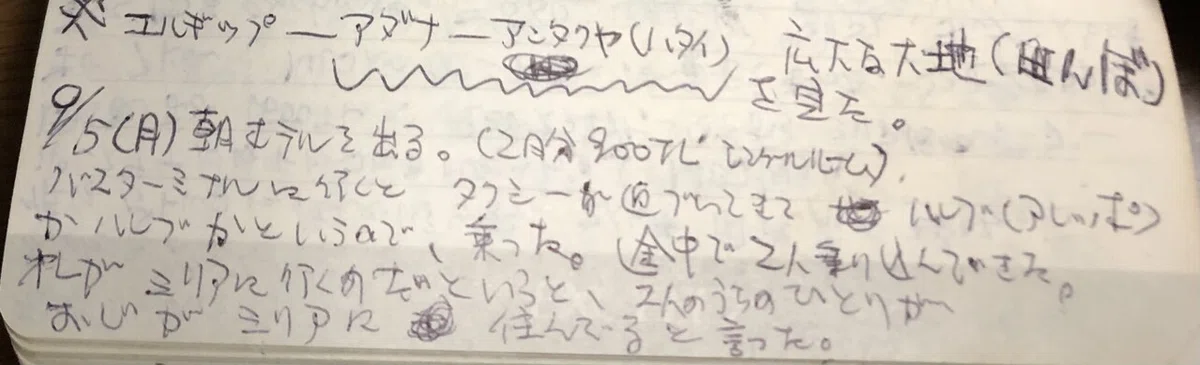 ※ エルギップ―アダナ―アンタクヤ(ハタイ) 広大な大地(田んぼ)
を見た。
9/5(月)朝ホテルを出る。(2日分 900TL シングルルーム).
バスターミナルに行くと タクシーが近づいてきて ハレブ(アレッポ)
か ハレブ かというので、乗った。途中で2人乗り込んできた。
私が シリアに行くのだというと、2人のうちのひとりが
おじが シリアに 住んでいると言った。